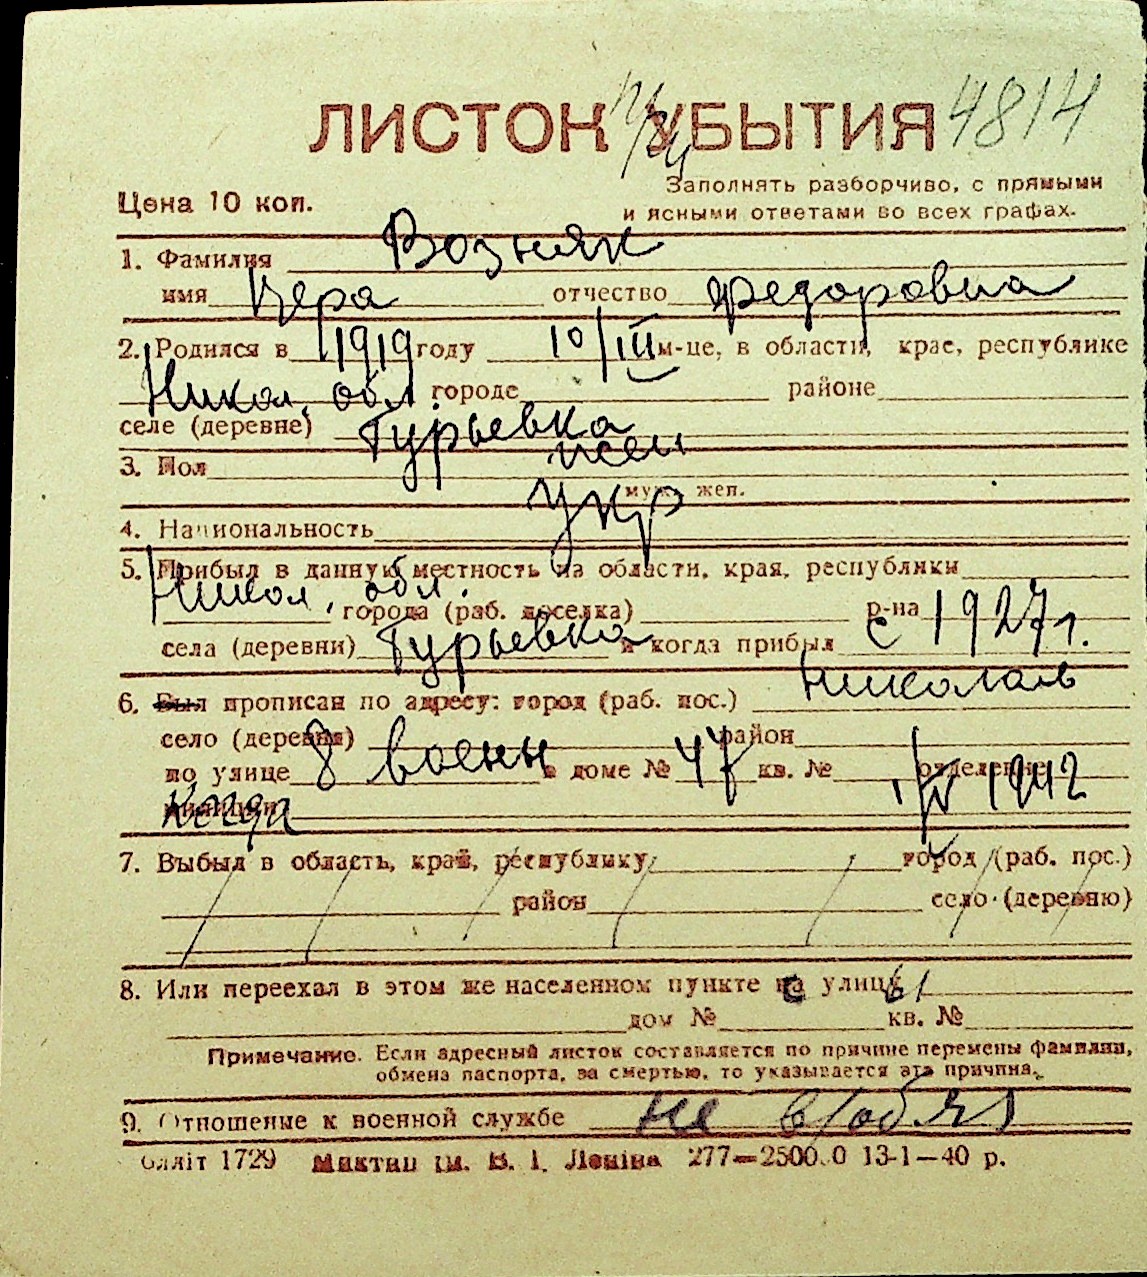 ЛИСТОК УБЫТИЯ 4814
Цена 10 коп.
Заполнять разборчиво, с прямыми
и ясными ответами во всех графах.
1. Фамилия Возняк
имя Вера отчество Федоровна
2. Родился в 1919 году 10/III м-це, в области, крае, республике
Никол. обл. городе районе
селе (деревне) Гурьевка
3. Пол жен
муж. жен.
4. Национальность Укр
5. Прибыл в данную местность из области, края, республики
Никол. обл. города (раб. поселка) р-на
села (деревни) Гурьевка и когда прибыл с 1927 г.
6. Был прописан по адресу: город (раб. пос.) Николаев
село (деревня) район
по улице 8 военн в доме № 47 кв. № отделение
1/IV 1942
7. Выбыл в область, край, республику город (раб. пос.)
район село (деревню)
8. Или переехал в этом же населенном пункте с улицы
дом № кв. №
Примечание. Если адресный листок составляется по причине перемены фамилии,
обмена паспорта, за смертью, то указывается эта причина.
9. Отношение к военной службе не в/обяз
Облліт 1729 ім. В. І. Леніна 13-1—40 р.